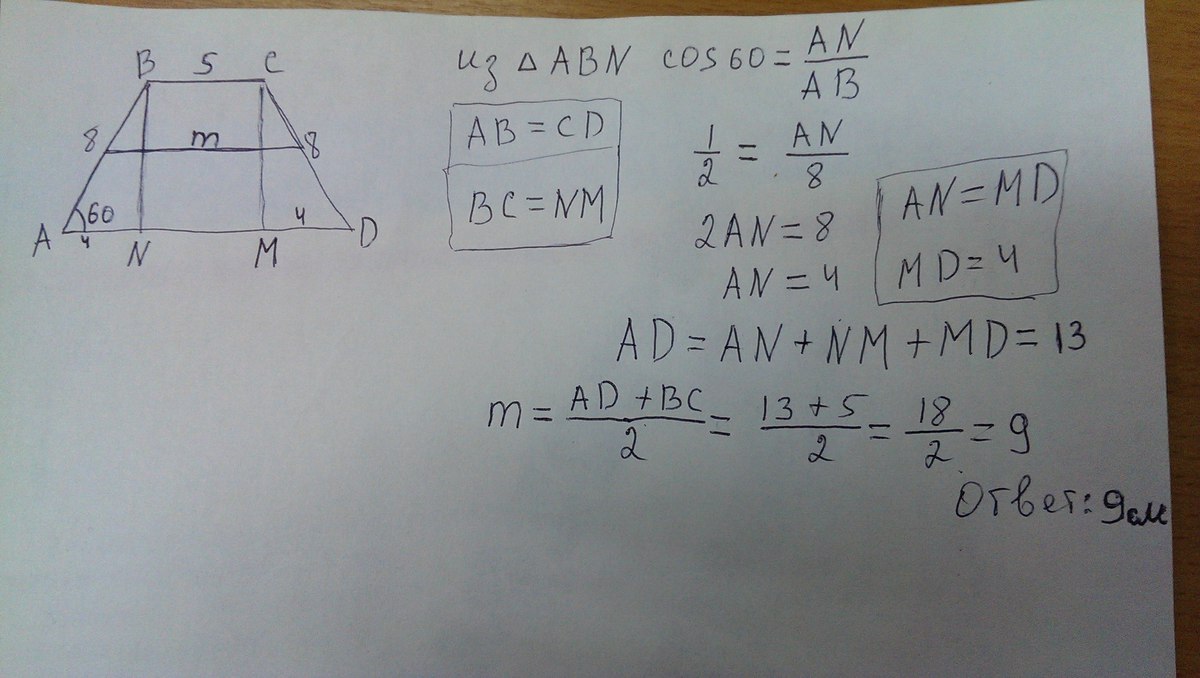 B 5 C
8 m 8
60
4 4
A N M D
из △ ABN cos 60 = AN/AB
AB = CD
BC = NM
1/2 = AN/8
2AN = 8
AN = 4
AN = MD
MD = 4
AD = AN + NM + MD = 13
m = (AD + BC)/2 = (13 + 5)/2 = 18/2 = 9
Ответ: 9 см